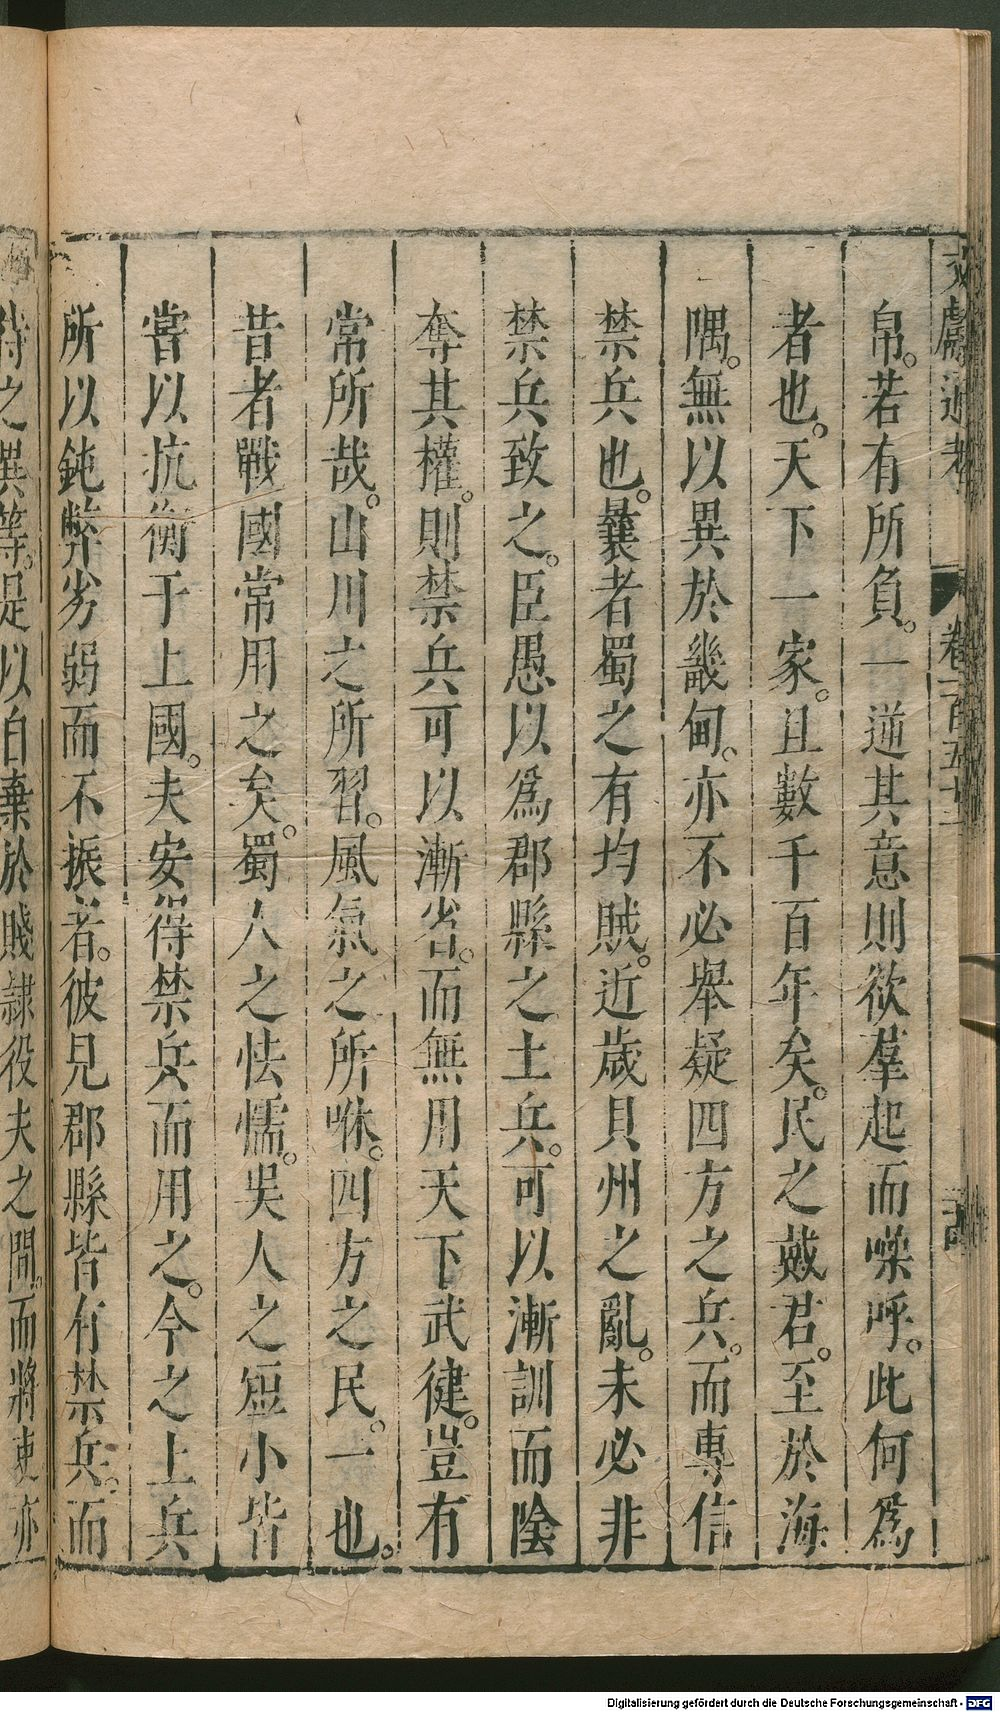 文獻通考 卷一百五十二
帛。若有所負。一逆其意則欲羣起而噪呼。此何爲
者也。天下一家。且數千百年矣。民之戴君。至於海
隅。無以異於畿甸。亦不必舉疑四方之兵。而專信
禁兵也。曩者蜀之有均賊。近歲貝州之亂。未必非
禁兵致之。臣愚以爲郡縣之土兵。可以漸訓而陰
奪其權。則禁兵可以漸省。而無用天下武健。豈有
常所哉。山川之所習。風氣之所咻。四方之民。一也。
昔者戰國常用之矣。蜀人之怯懦。吳人之短小皆
嘗以抗衡于上國。夫安得禁兵而用之。今之土兵
所以鈍弊劣弱而不振者。彼見郡縣皆有禁兵。而
待之異等。是以自棄於賤隷役夫之間。而將吏亦
Digitalisierung gefördert durch die Deutsche Forschungsgemeinschaft - DFG